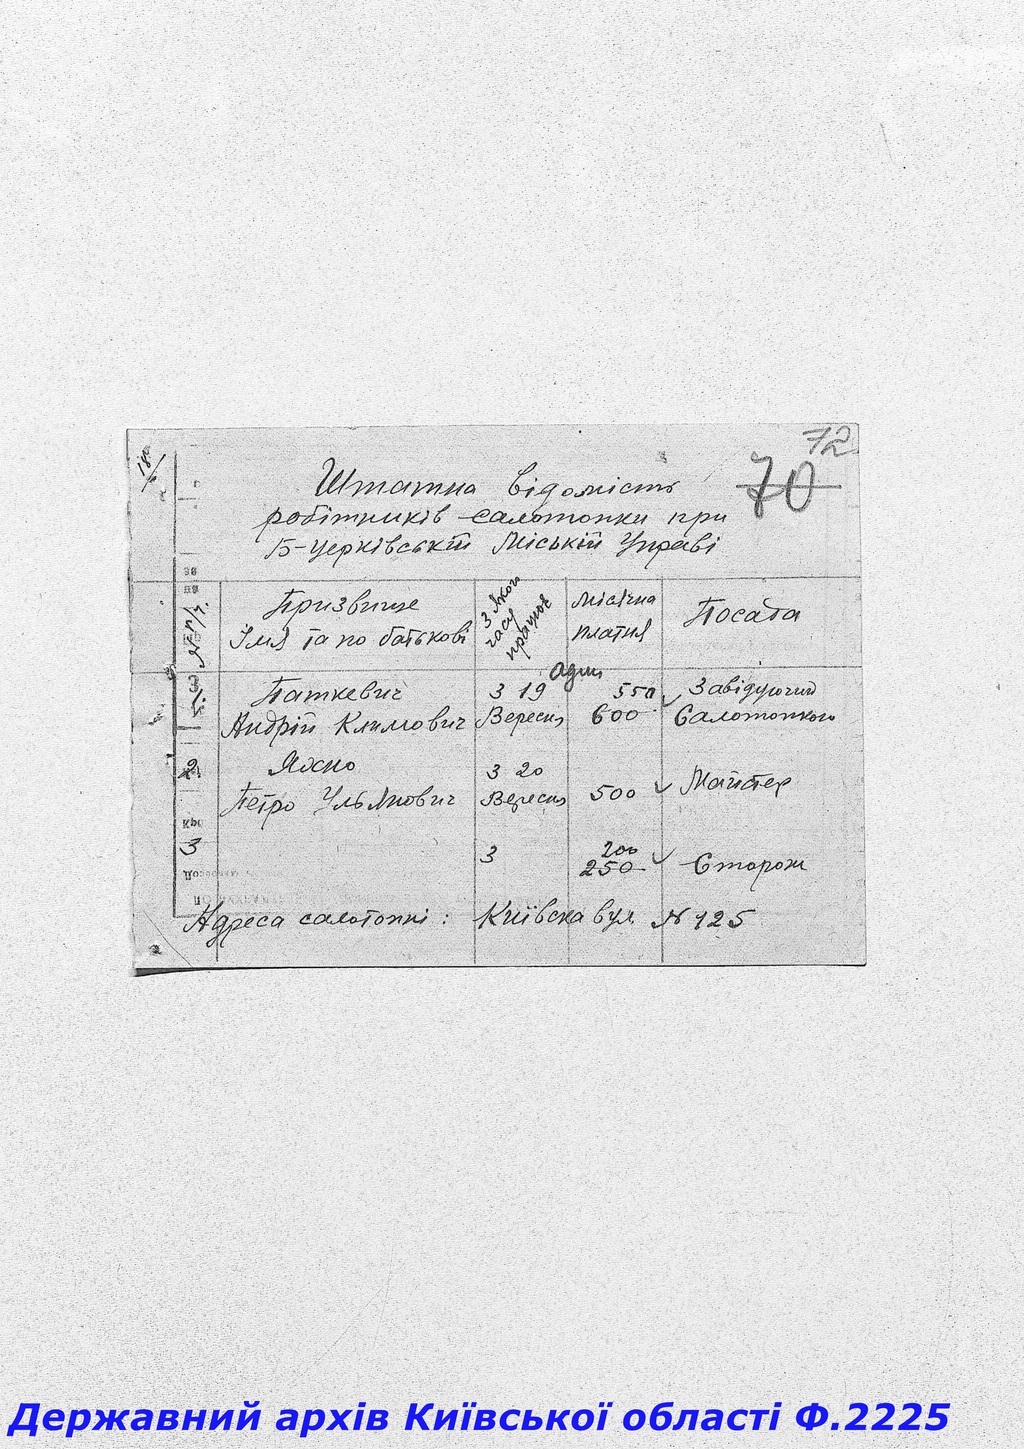 72
70
Штатна відомість
робітників салотопки при
Б-Церківській Міській Управі
№ п/ч.
Призвище
Імя та по батькові
З якого
часу
працює
Місячна
платня
Посада
Адм
1.
Паткевич
Андрій Климович
З 19
Вересня
550
600
Завідуючий
Салотопкою
2.
Яхно
Петро Ульянович
З 20
Вересня
500
Майстер
3
З
200
250
Сторож
Адреса салотопкі: Київска вул № 125
Державний архів Київської області Ф.2225